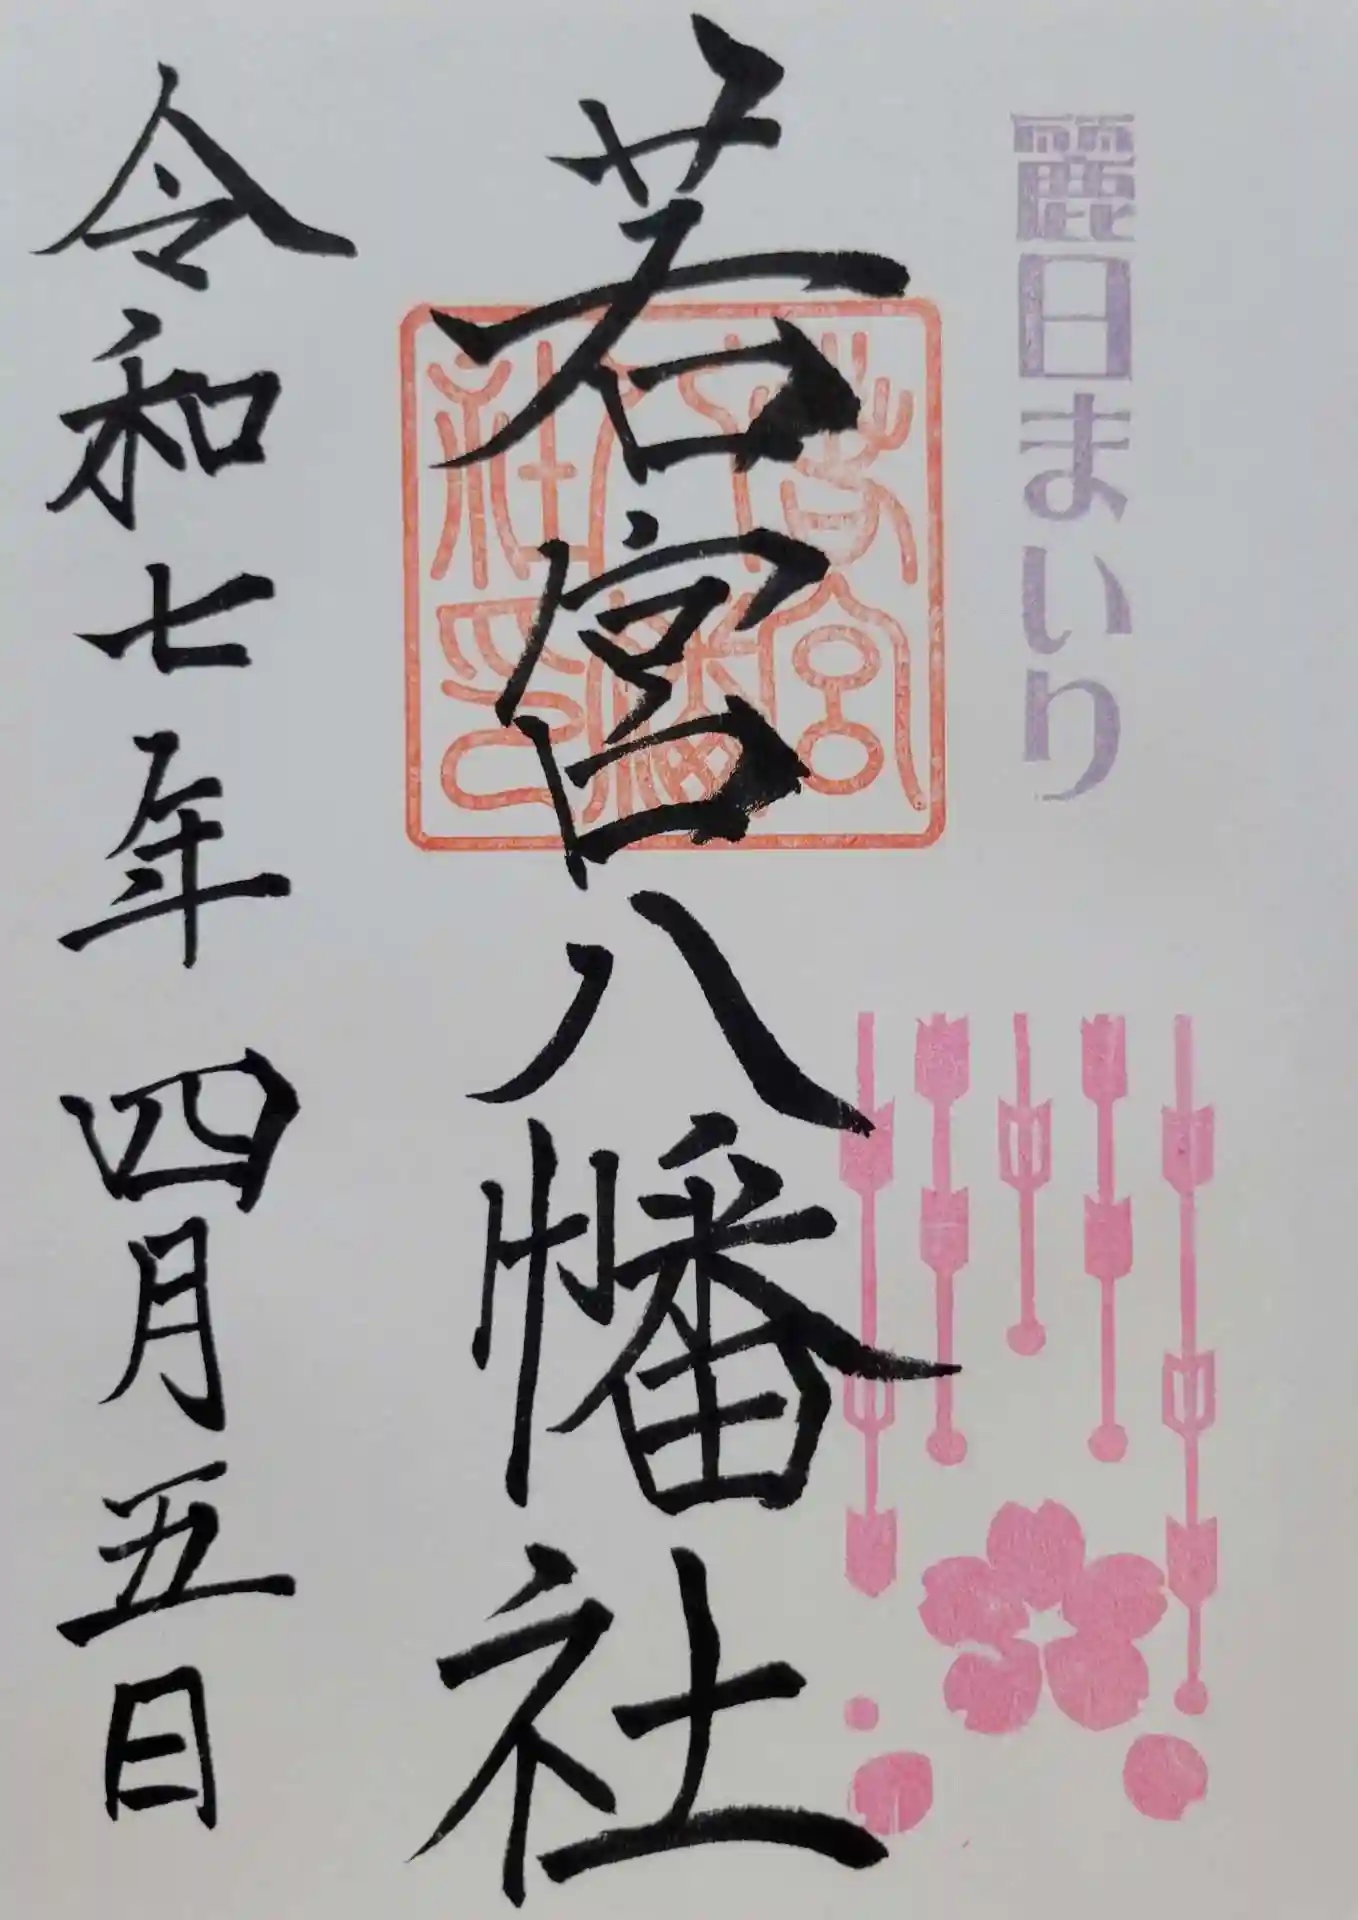 麗日まいり
若宮八幡社
若宮八幡社印
令和七年四月五日